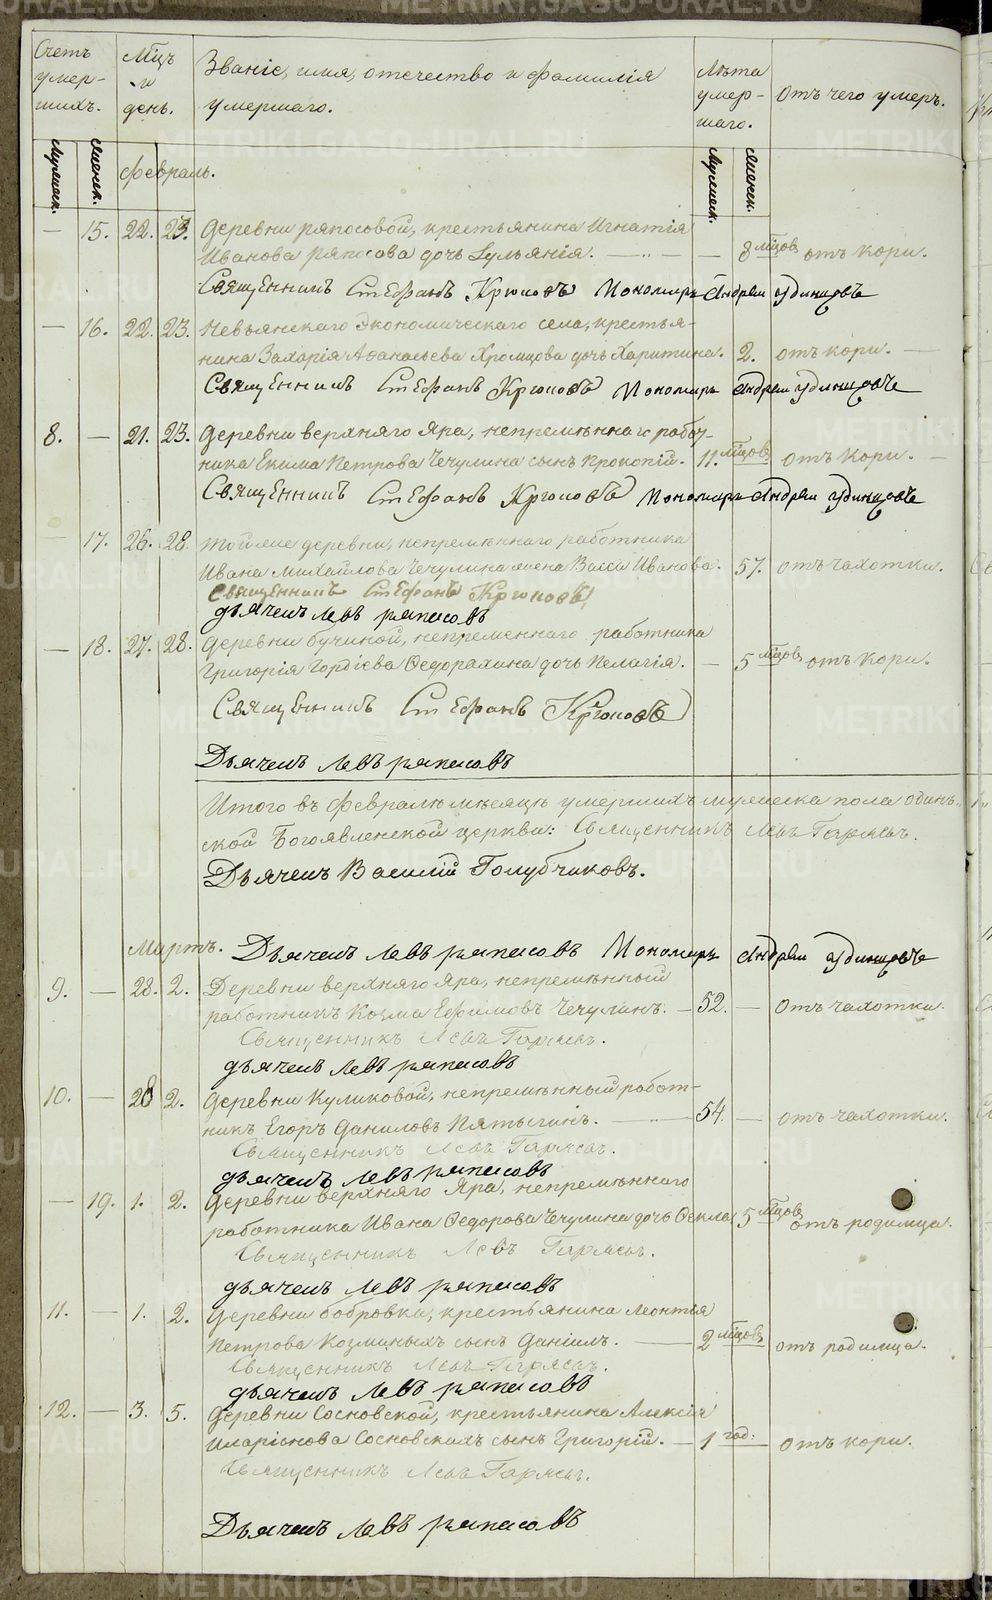 Счетъ умер-шихъ.
Мцъ и день.
Званіе, имя, отечество и фамилія умершаго.
Лѣта умер-шаго.
Отъ чего умеръ.
Мужеск. Женск. Мужеск. Женск.
Февраль.
— 15. 22. 23. Деревни Ряпосовой, крестьянина Игнатія
Иванова Ряпосова дочь Іульянія. — „ — — 8 мцовъ отъ кори.
Священникъ Стефанъ Крюковъ Пономарь Андрей Удинцовъ
— 16. 22. 23. Невьянскаго Экономическаго села, крестья-
нина Захарія Аѳанасьева Хромцова дочь Харитина. 2. отъ кори. —
Священникъ Стефанъ Крюковъ Пономарь Андрей Удинцовъ
8. — 21. 23. Деревни верхняго Яра, непремѣннаго работ-
ника Екима Петрова Чечулина сынъ Прокопій. 11. мцовъ отъ кори. —
Священникъ Стефанъ Крюковъ Пономарь Андрей Удинцовъ
— 17. 26. 28. Тойже деревни, непремѣннаго работника
Ивана Михайлова Чечулина жена Васса Иванова. 57. отъ чахотки.
Священникъ Стефанъ Крюковъ
Дьячекъ Левъ Ряпасовъ
— 18. 27. 28. Деревни Бучиной, непременнаго работника
Григорія Гордіева Ѳедорахина дочь Пелагія. — 5 мцовъ отъ кори.
Священникъ Стефанъ Крюковъ
Дьячекъ Левъ Ряпасовъ
Итого въ Февралѣ мѣсяцѣ умершихъ мужеска пола одинъ..
ской Богоявленской церкви: Священникъ Левъ Гаряевъ.
Дьячекъ Василій Голубчиковъ.
Мартъ. Дьячекъ Левъ Ряпасовъ Пономарь Андрей Удинцовъ
9. — 28. 2. Деревни верхняго Яра, непремѣнный
работникъ Козма Ефимовъ Чечулинъ. — 52. — отъ чахотки.
Священникъ Левъ Гаряевъ.
Дьячекъ Левъ Ряпасовъ
10. — 28 2. Деревни Куликовой, непремѣнный работ-
никъ Егоръ Даниловъ Пятыгинъ. — „ — 54. — отъ чахотки.
Священникъ Левъ Гаряевъ.
Дьячекъ Левъ Ряпасовъ
— 19. 1. 2. Деревни верхняго Яра, непремѣннаго
работника Ивана Ѳедорова Чечулина дочь Ѳекла. 5 мцовъ отъ родимца.
Священникъ Левъ Гаряевъ.
Дьячекъ Левъ Ряпасовъ
11. — 1. 2. Деревни Бобровки, крестьянина Леонтья
Петрова Козминыхъ сынъ Даніилъ. — 2 мцовъ отъ родимца.
Священникъ Левъ Гаряевъ.
Дьячекъ Левъ Ряпасовъ
12. — 3. 5. Деревни Сосновской, крестьянина Алексія
Иларіонова Сосновскихъ сынъ Григорій. — 1 год: — отъ кори.
Священникъ Левъ Гаряевъ.
Дьячекъ Левъ Ряпасовъ
METRIKI.GASO-URAL.RU